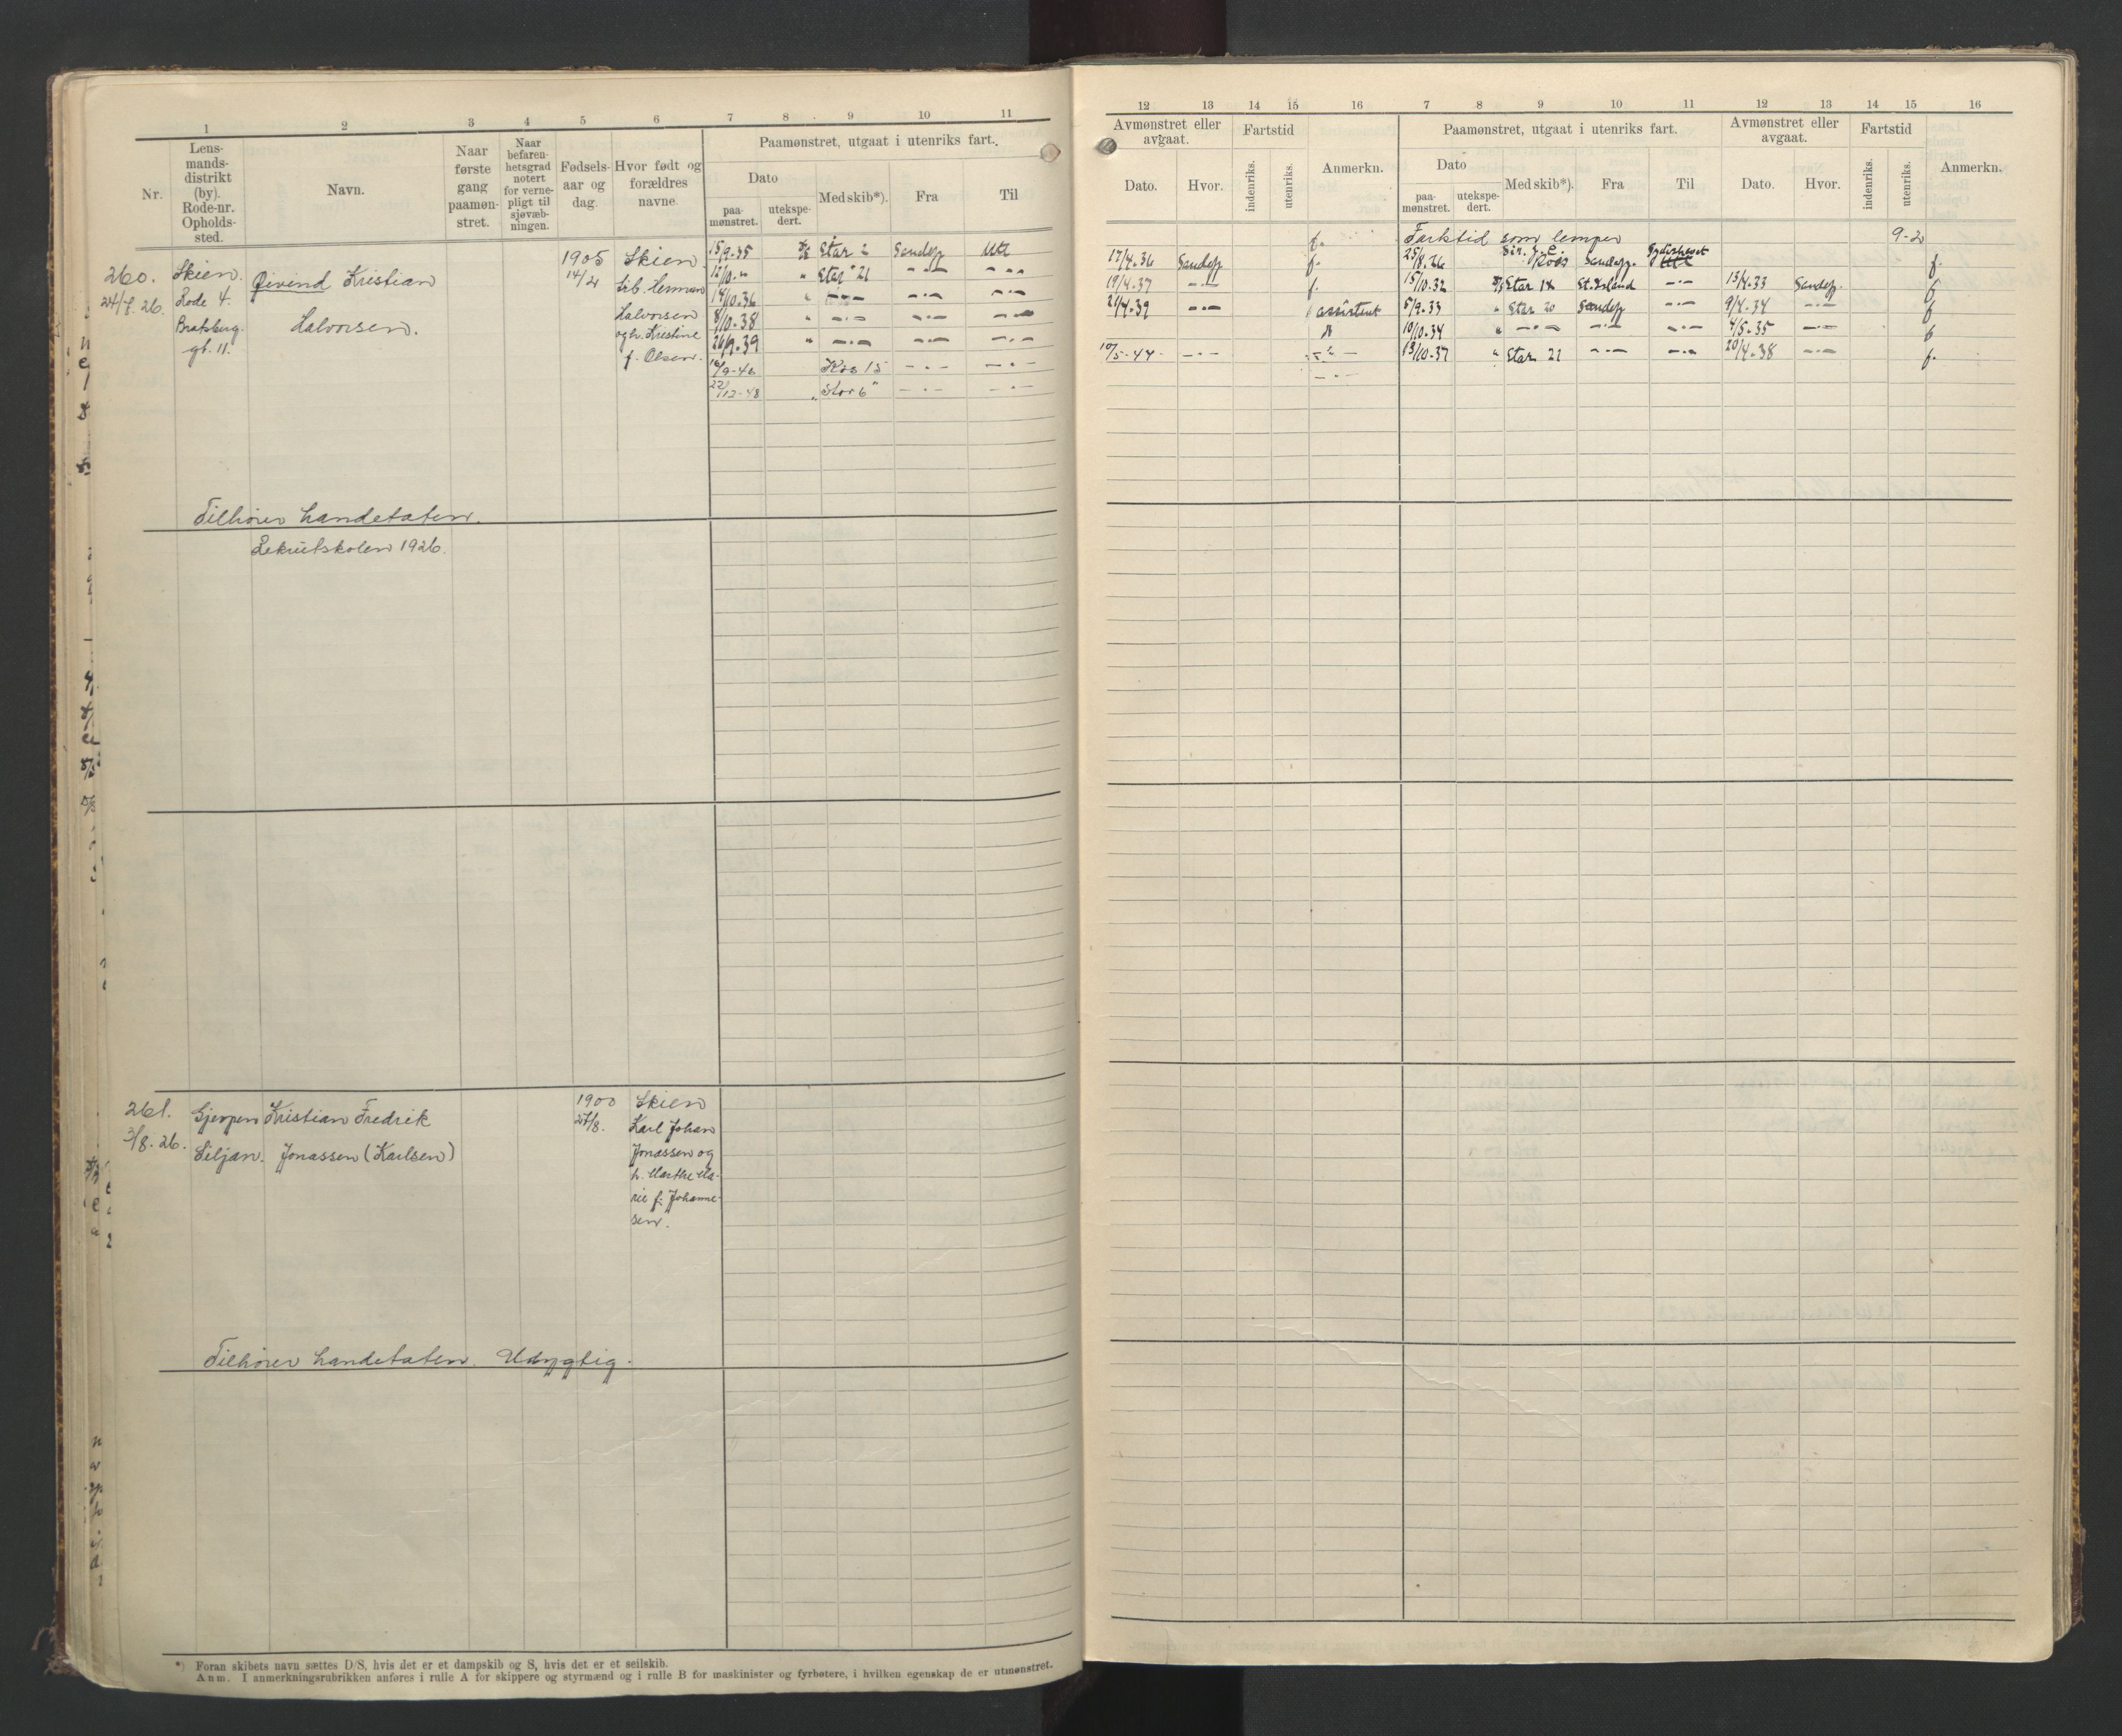 1 2 3 4 5 6 7 8 9 10 11
Nr.
Lens-
mands-
distrikt
(by).
Rode-nr.
Opholds-
sted.
Navn.
Naar
første
gang
paamøn-
stret.
Naar
befaren-
hetsgrad
notert
for verne-
pligt til
sjøvæb-
ningen.
Fødsels-
aar og
dag.
Hvor født og
forældres
navne.
Paamønstret, utgaat i utenriks fart.
Dato
paa-
mønstret.
utekspe-
dert.
Med skib*).
Fra
Til
260.
24/7.26.
Skien.
Rode 4.
Bratsberg-
gt. 11.
Øivind Kristian
Halvorsen.
1905
14/2
Skien
Halvorsen
og h. Kristine
f. Olsen.
15/9.35 D/S Star 2 Sandefj Utl
" Star 21 — " — — " —
14/10.36 " — " — — " — — " —
8/10.38 " — " — — " — — " —
26/9.39 " — " — — " — — " —
/9-46 Kos 15 — " — — " —
22/12-48 " Star 6" — " — — " —
Tilhører landetaten.
Rekrutskolen 1926.
261.
3/8.26.
Gjerpen
Siljan.
Kristian Fredrik
Jonassen (Karlsen)
1900
27/8.
Skien
Karl Johan
Jonassen og
h. Marthe Ma-
rie f. Johanne-
sen.
Tilhører landetaten. Udygtig.
*) Foran skibets navn sættes D/S, hvis det er et dampskib og S, hvis det er et seilskib.
Anm. I anmerkningsrubrikken anføres i rulle A for skippere og styrmænd og i rulle B for maskinister og fyrbøtere, i hvilken egenskap de er utmønstret.
12 13 14 15 16 7 8 9 10 11 12 13 14 15 16
Avmønstret eller
avgaat.
Dato.
Hvor.
Fartstid
indenriks.
utenriks.
Anmerkn.
Paamønstret, utgaat i utenriks fart.
Dato
paa-
mønstret.
utekspe-
dert.
Med skib*).
Fra
Til
Avmønstret eller
avgaat.
Dato.
Hvor.
Fartstid
indenriks.
utenriks.
Anmerkn.
f. Fartstid som lemper 9-2
17/4.36 Sandefj f. 25/8.26 Sandefj. f.
19/4.37 — " — f. 15/10.32 D/S Star 18 — " — 13/4.33 Sandefj. f
21/4.39 — " — assistent 5/9.33 " Star 20 Sandefj — " — 9/4.34 — " — f
10/10.34 " — " — — " — — " — 4/5.35 — " — f
/5-47 — " — 13/10.37 " Star 21 — " — — " — 20/4.38 — " — f.
— " —